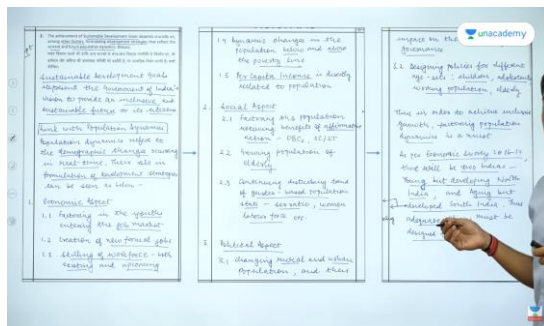 3. The achievement of Sustainable Development Goals depends crucially on,
among other factors, formulating development strategies that reflect the
current and future population dynamics. Discuss.
Sustainable Development Goals
represent the Government of India's
vision to provide an inclusive and
sustainable future to its citizens
Link with Population Dynamics:
Population dynamics refers to
the demographic changes occurring
in real time. There role in
formulation of development strategies
can be seen as below -
1. Economic Aspect
1.1 Factoring in the youths
entering the job market
1.2 Creation of new formal jobs
1.3 Skilling of workforce - both
existing and upcoming
1.4 Dynamic changes in the
population below and above
the poverty line
1.5 Per Capita Income is directly
related to population
2. Social Aspect
2.1 Factoring in a population
receiving benefits of affirmative
action - OBCs, SC/ST
2.2 Growing population of
elderly
2.3 Continuing disturbing trend
in gender-based population
stats - sex ratio, women
labour force etc
3. Political Aspect
3.1 Changing rural and urban
Population, and their
impact on the
governance
3.2 Designing policies for different
age-sets: children, adolescents
working population, elderly
Thus in order to achieve inclusive
growth, factoring population
dynamics is a must
As per Economic Survey 2016-17,
there will be two Indias -
Young but developing North
India, and Aging but
developed South India. Thus
adequate must be
designed
unacademy